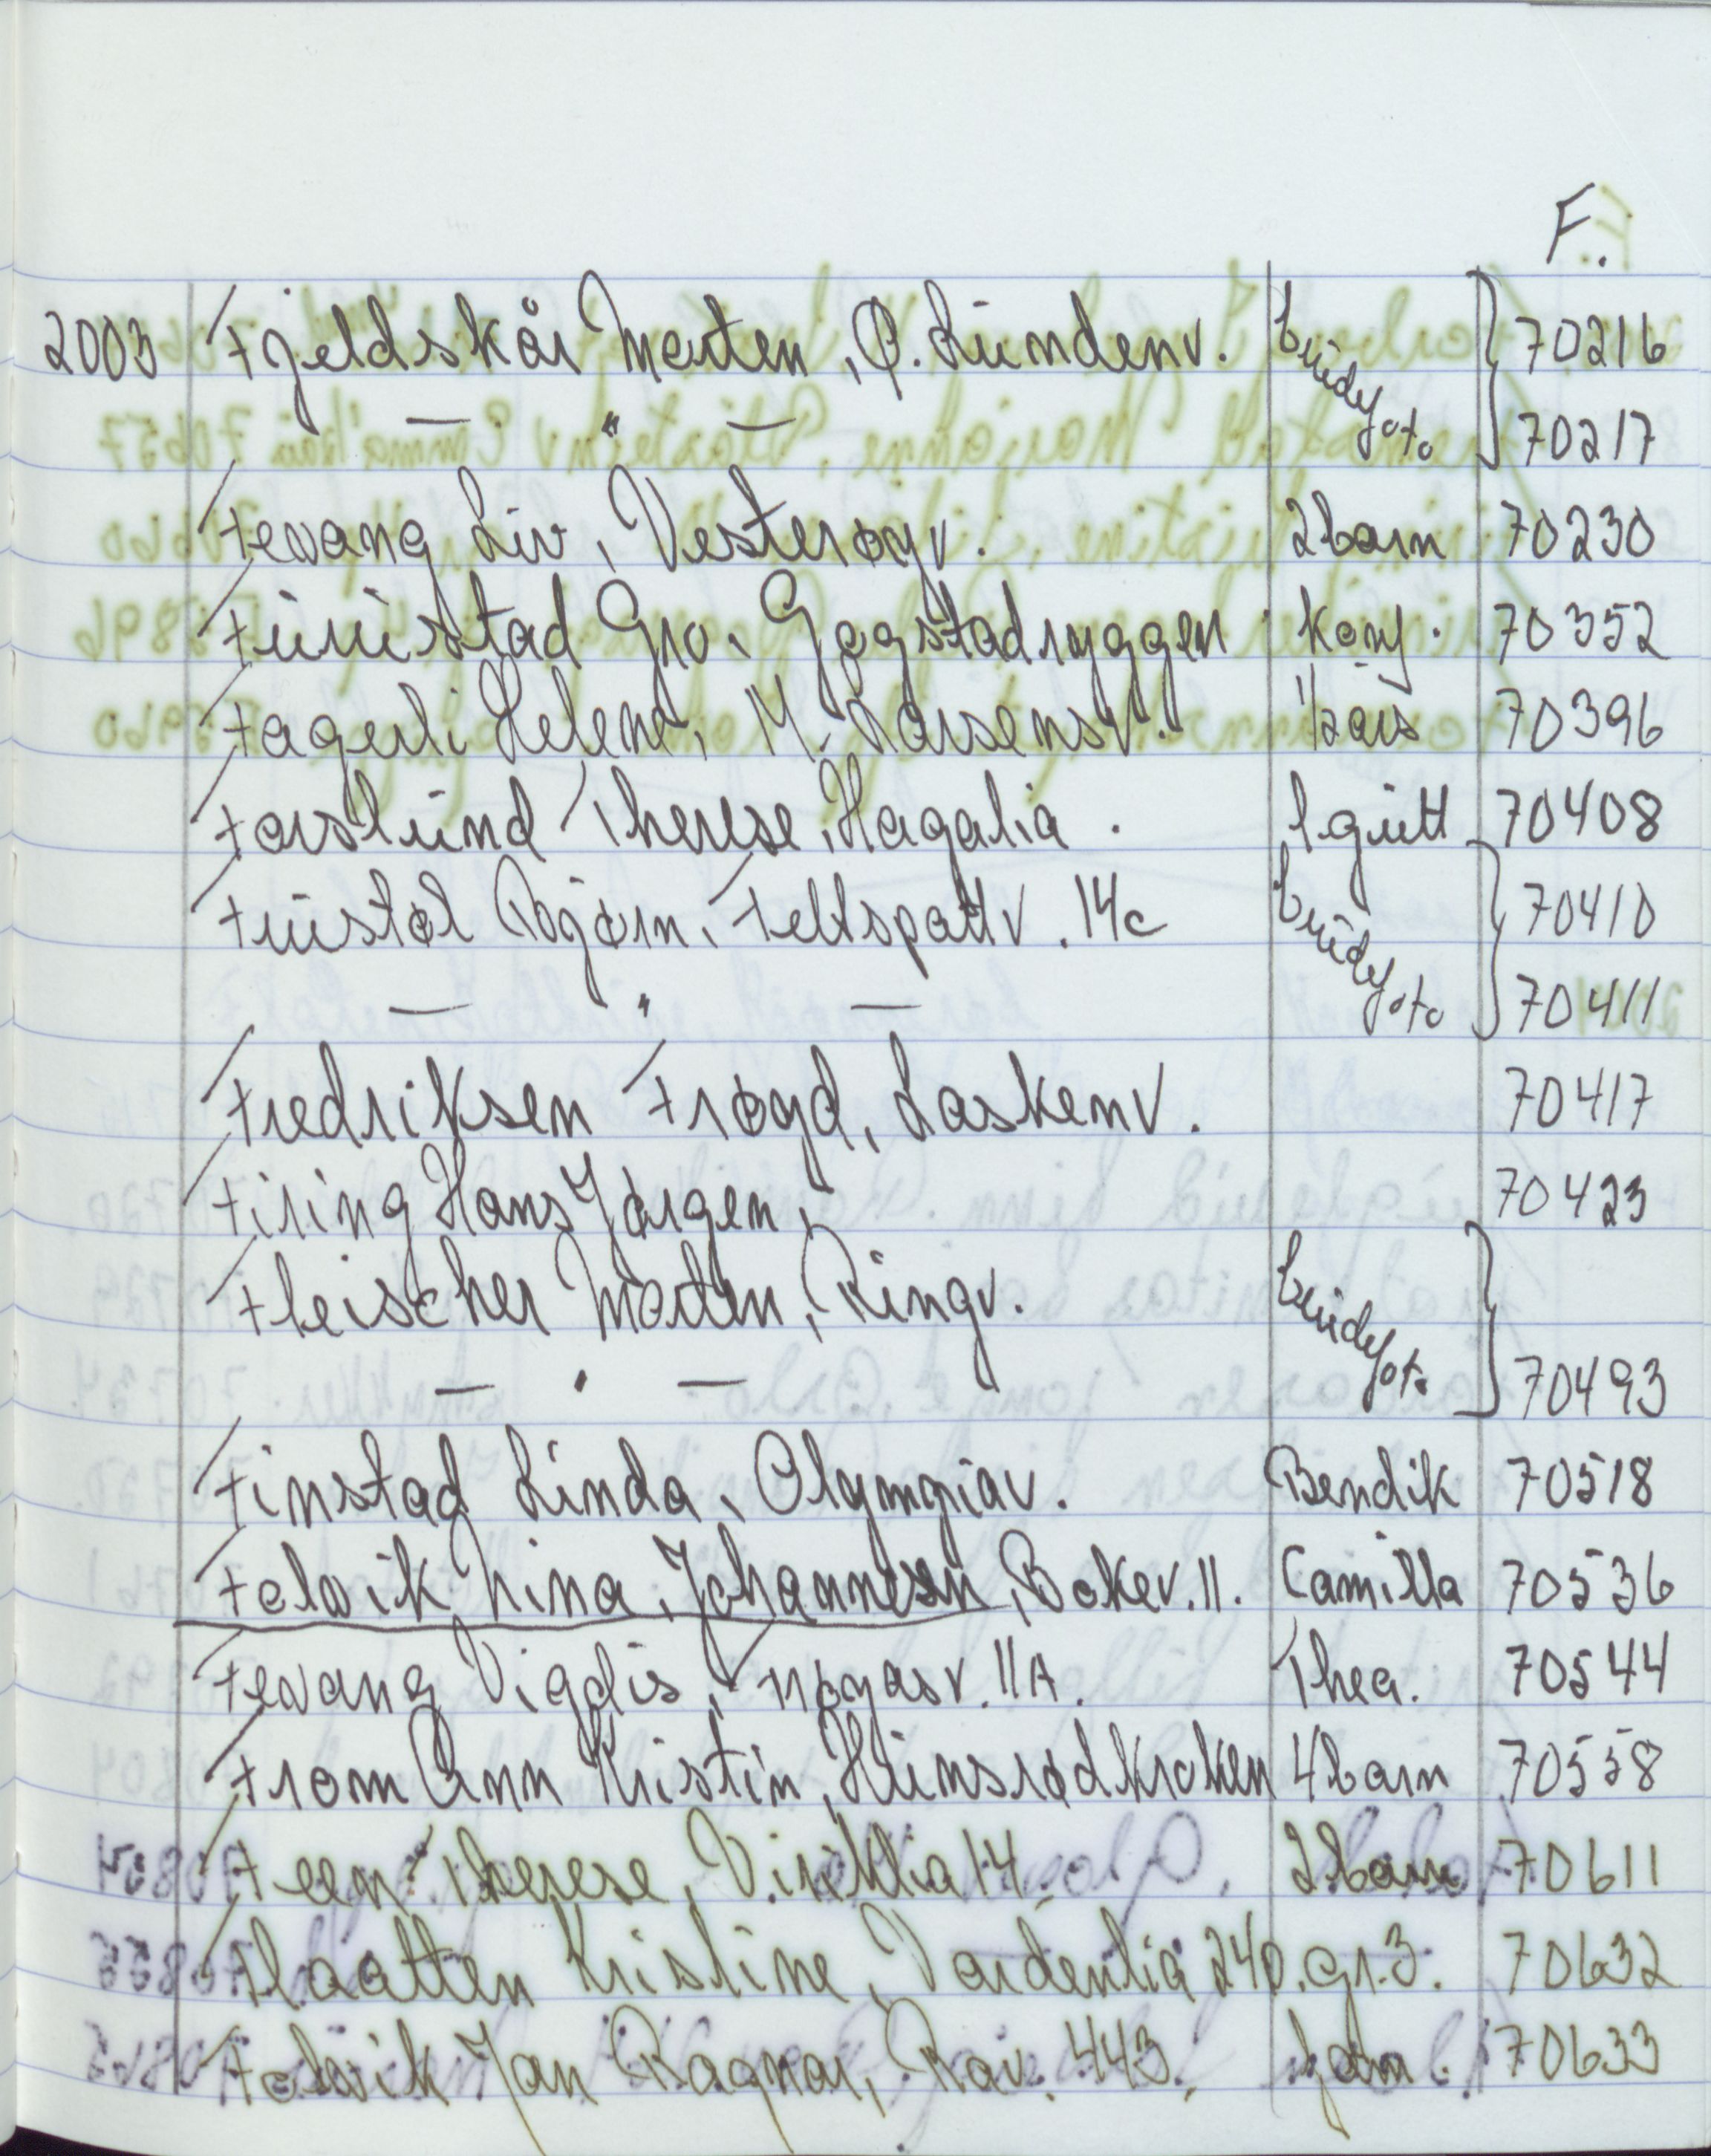 F.
2003 Fjeldskår Morten, Ø. Lundenv. brudefoto 70216
— " — 70217
Fevang Liv, Vesterøyv. 2 barn 70230
Furustad Gro, Gogstadryggen konf. 70352
Fagerli Helene, M. Larsensv. 1/2 års 70396
Forslund Therese, Hagalia. 1 gutt 70408
Fuustøl Bjørn, Feltspattv. 14c brudefoto 70410
— " — 70411
Fredriksen Frøyd, Laskenv. 70417
Firing Hans Jørgen, 70423
Fleischer Morten, Ringv. brudefoto
— " — 70493
Finstad Linda, Olympiav. Bendik 70518
Folvik Nina, Johannesen, Bokev. 11. Camilla 70536
Fevang Vigdis, Frøyasv. 11A. Thea. 70544
From Ann Kristin, Hunsrødkroken 4 barn 70558
Feen Therese, Vireklia 14 2 barn 70611
Flaatten Kristine, Vardenlia 24D. gr. 3. 70632
Folvik Jan Ragnar, Rav. 443, fam. 70633